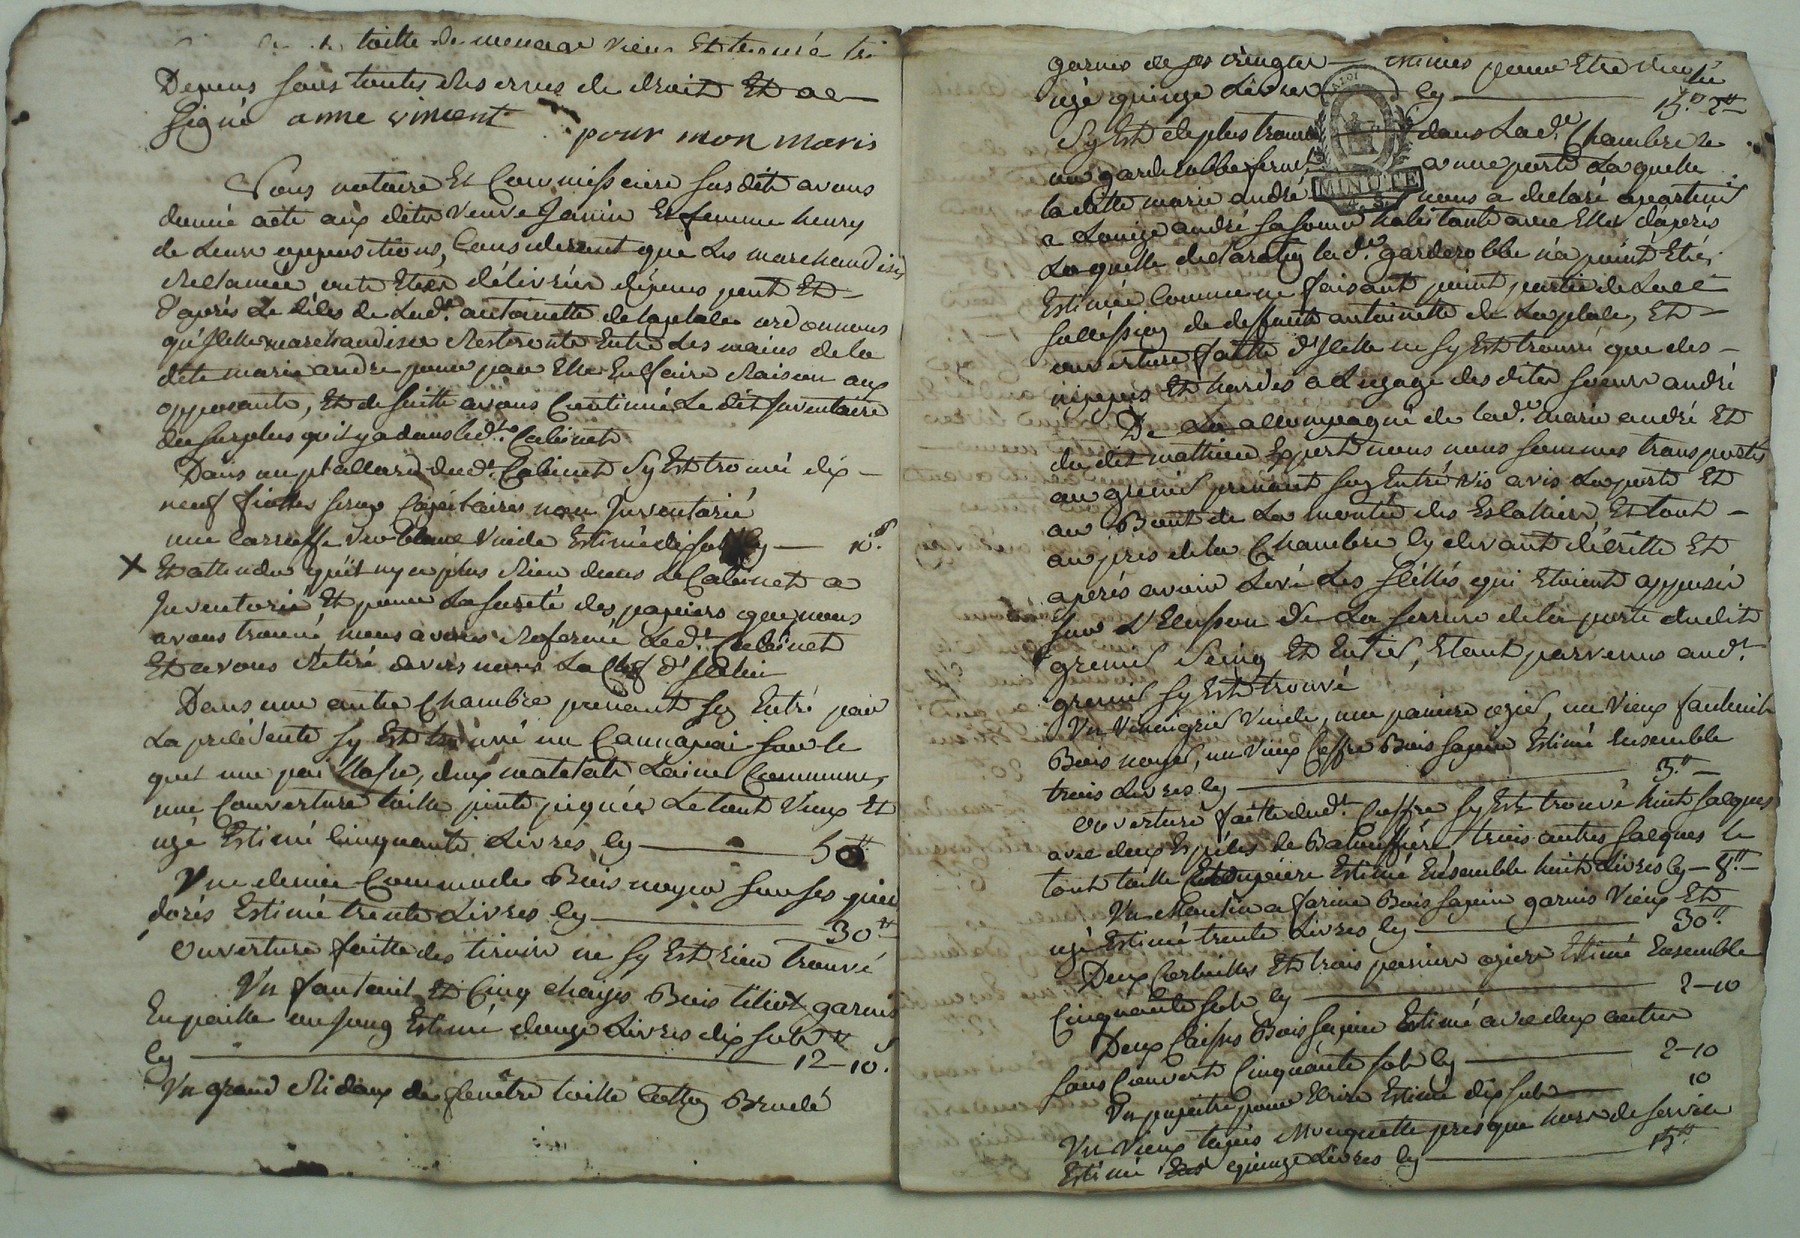 toille de menage vieu Et trouvé
Depens sous toutes reserves de droit Et a
signé anne vincent
pour mon maris
Nous notaire Et Commissaire susdit avons
donné acte aux dites veuve Janin Et femme henry
de Leurs oppositions, Considerant que Les marchandises
reclamées ont Eté délivrées depuis peut Et
d'aprés Le déces de Lad.e antoinette delaplale ordonnons
qu'Jcelles marchandises Resteronts Entre Les mains de la
dite marie andre pour par Elle En faire Raison aux
opposants, Et de suitte avons Continué Le dit Inventaire
du surplus qu'il y a dans led.t Cabinet
Dans un placard dud.t Cabinet sy Est trouvé dix
neuf fiolles sirop Capilaires non Inventorié
une Caraffe Verre blanc Vuide Estimé dix sols cy — 10.s
X Et attendu qu'il ny a plus Rien dans Le Cabinet a
Inventorié Et pour La sureté des papiers que nous
avons trouvé nous avons Refermé Led.t Cabinet
Et avons Retiré devers nous La Clef d'Jcelui
Dans une autre Chambre prenant son Entré par
La précédente sy Est trouvé un Cannapai sur le
quel une pailliasse, deux matelats Laine Commune,
une Couverture toille peinte piquée Le tout Vieux Et
uzé Estimé Cinquante Livres cy — 50 ₶
Une demie Commode Bois noyer sur ses pieds
dorés Estimé trente Livres cy — 30 ₶
ouverture faitte des tiroirs ne sy Est rien Trouvé
Un fauteuil Et Cinq chaises Bois tilieux garnis
En paille ou jong Estimé douze Livres dix sols
cy — 12-10.s
Un grand Rideaux de fenêtre toille Cotton Brodé
garnis de ses tringles
uzé quinze Livres cy — 15.₶
MINUTE
Sy Est de plus trouvé dans Lad.e Chambre
un garderobbe fermt a une porte Laquelle
la dite marie andré nous a declaré apartenir
a Louise andré sa soeur habitante avec Elle d'aprés
Laquelle declaration lad.e garderobbe n'a point Eté
Estimée Comme ne faisant point partie de La ditte
succession de deffunte antoinette de Laplale, Et
ouverture faitte d'Jcelle ne sy Est trouvé que des
nippes Et hardes a L'uzage des dites soeurs andré
De La accompagné de lad.e marie andré Et
du dit mathieu Expert nous nous sommes transportés
au grenier prenant son Entré vis avis La porte Et
au Bout de La montée des Escalliers Et tout
au pres de la Chambre cy devant décritte Et
aprés avoir Levé Les scéllés qui Etoient apposés
sur L'Ecusson de La serrure de la porte dudit
grenier seing Et Entier, Etant parvenus aud.t
grenier sy Est trouvé
Un Vinaigrier Vuide, une paniere ozier, un Vieux fauteuil
Bois noyer, un Vieux Coffre Bois sapin Estimé Ensemble
trois Livres cy — 3.₶
ouverture faitte dud.t Coffre sy Est trouvé huit sacques
avec deux Espéces de Baloufiére trois autres sacques le
tout toille Estoupiere Estimé Ensemble huit Livres cy — 8.₶
Un chantier a farine Bois sapin garnis Vieux Et
uzé Estimé trente Livres cy — 30.₶
Deux Corbeilles Et trois paniers oziers Estimé Ensemble
Cinquante sols cy — 2-10
Deux Caisses Bois sapin Estimé avec deux autres
sans Couverts Cinquante sols cy — 2-10
Un pupitre pour Ecrire Estimé dix sols — 10
Un Vieux tapis Mouquette presque hors de service
Estimé quinze Livres cy — 15₶